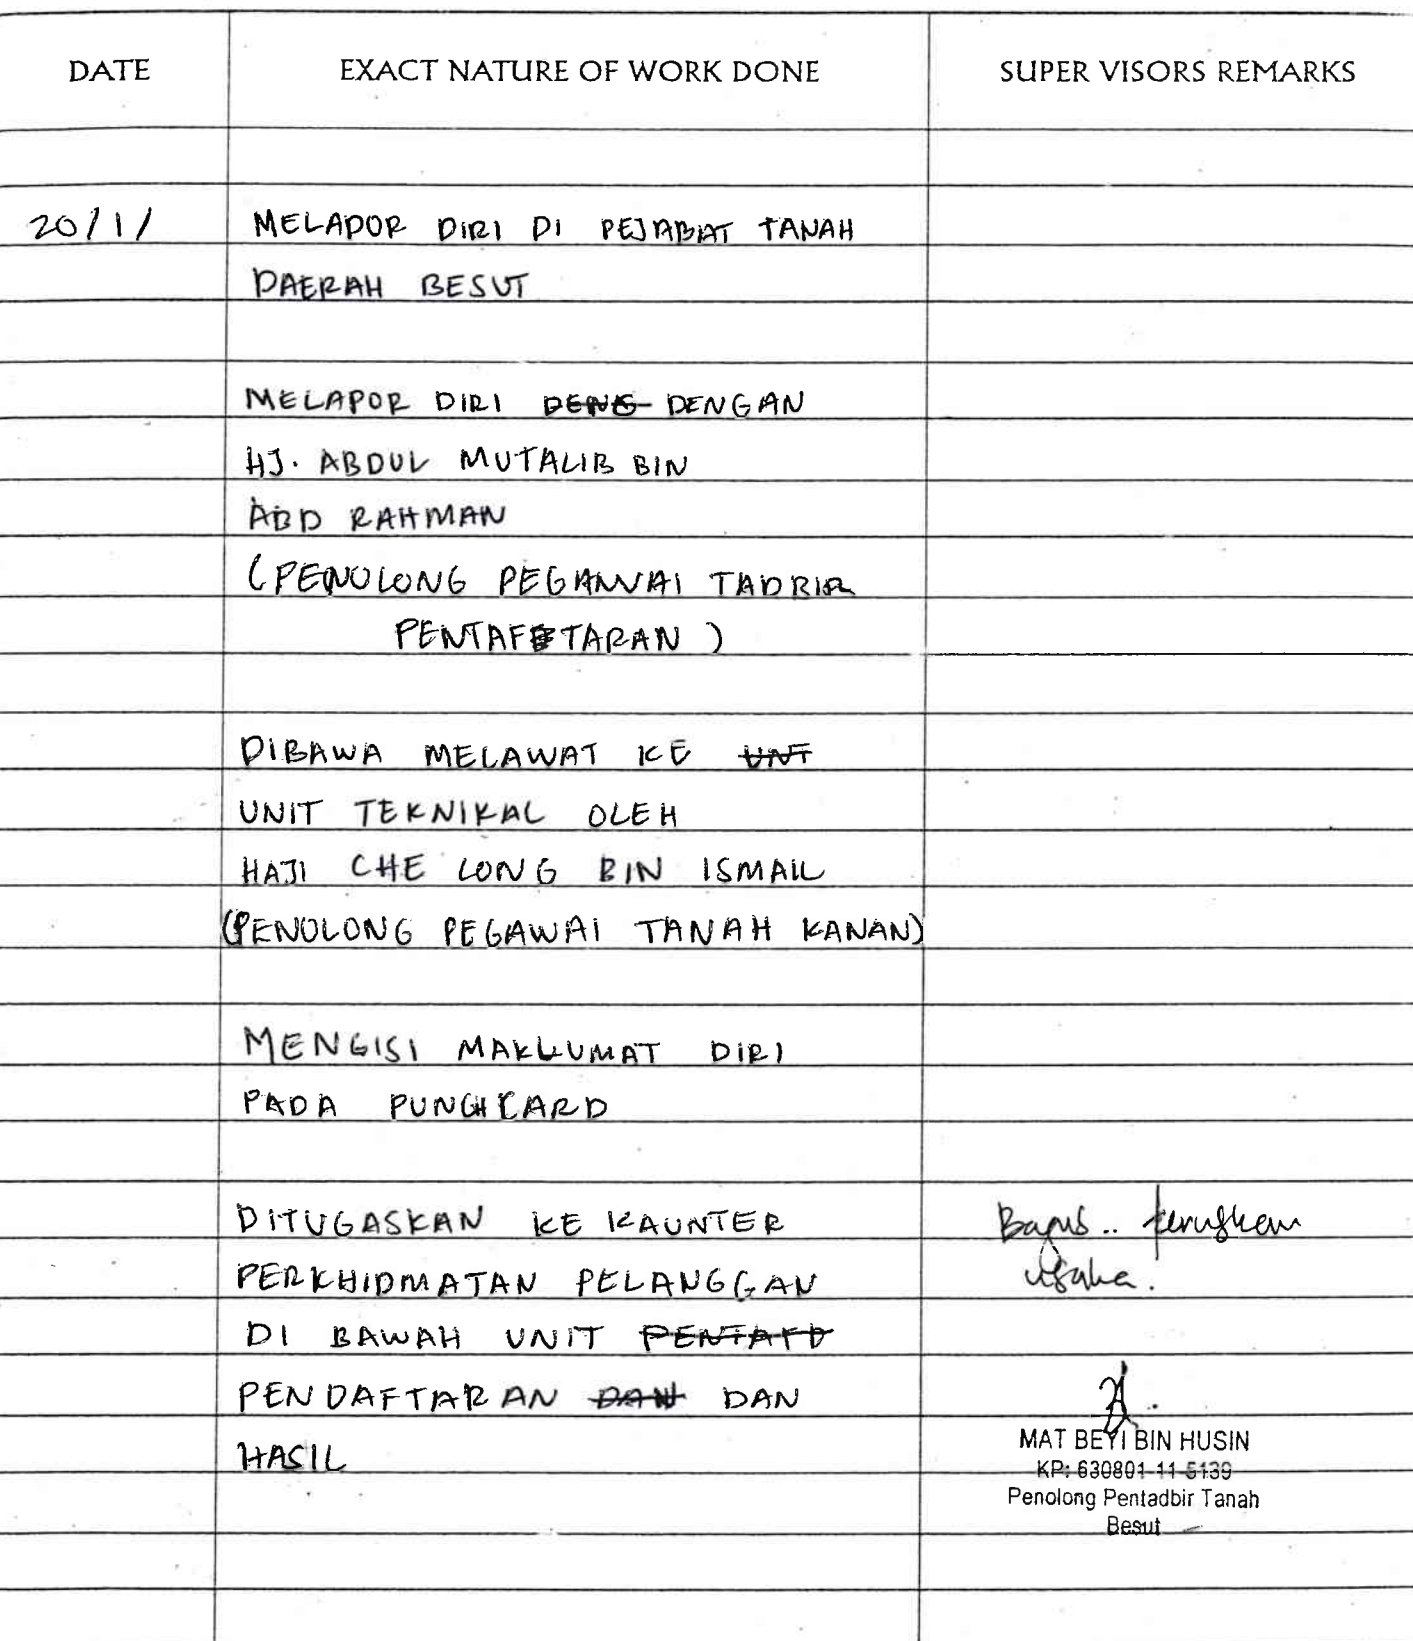 DATE EXACT NATURE OF WORK DONE SUPER VISORS REMARKS
20/1/ MELAPOR DIRI DI PEJABAT TANAH
DAERAH BESUT
MELAPOR DIRI DENG DENGAN
HJ. ABDUL MUTALIB BIN
ABD RAHMAN
(PENOLONG PEGAWAI TADBIR
PENTAFTARAN)
DIBAWA MELAWAT KE UNT
UNIT TEKNIKAL OLEH
HAJI CHE LONG BIN ISMAIL
(PENOLONG PEGAWAI TANAH KANAN)
MENGISI MAKLUMAT DIRI
PADA PUNCHCARD
DITUGASKAN KE KAUNTER Bagus.. teruskan
PERKHIDMATAN PELANGGAN usaha.
DI BAWAH UNIT PENTAFD
PENDAFTARAN DAN DAN
HASIL
MAT BEYI BIN HUSIN
KP: 630801-11-5139
Penolong Pentadbir Tanah
Besut